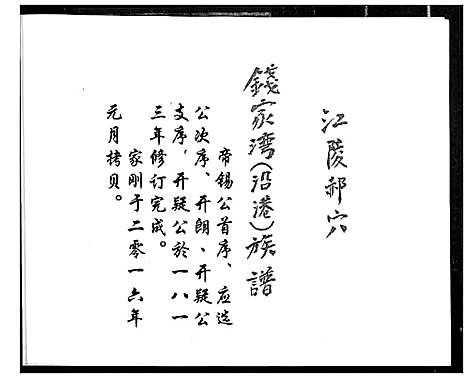 江陵郝穴
錢家湾(沿港)族譜
帝锡公首序、应选
公次序、开朗、开疑公
支序，开疑公於一八一
三年修订完成。
家刚于二零一六年
元月拷贝。